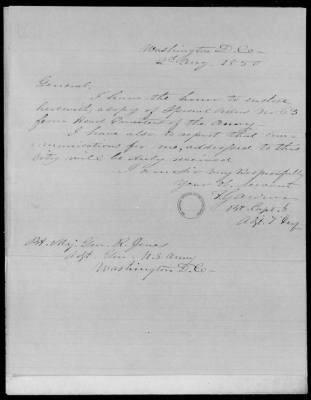 Washington D.Co-
2d Aug. 1850
General,
I have the honor to enclose
herewith, a copy of Special Orders No 63
from Head Quarters of the Army.
I have also to report that com-
munications for me, addressed to this
City will be duly received
I am Sir very Respectfully
Your Ob. Servant
Bt. Capt. &
Adjt. 7 Infy
Bt. Maj. Gen. R. Jones
Adjt. Gen. U.S. Army
Washington D.Co-